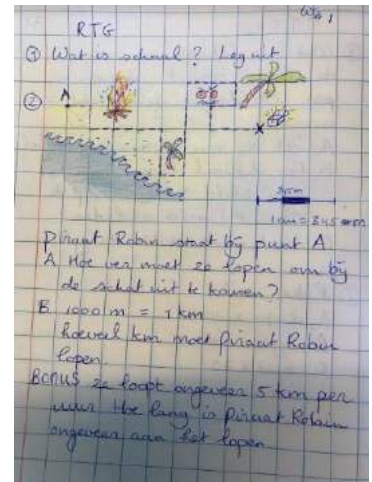 RTG
① Wat is schaal? Leg uit
② A
X
345m
1 cm = 345 m
Piraat Robin staat bij punt A
A Hoe ver moet ze lopen om bij
de schat uit te komen?
B 1000 m = 1 km
hoeveel km moet Piraat Robin
lopen
Bonus ze loopt ongeveer 5 km per
uur Hoe lang is Piraat Robin
ongeveer aan het lopen